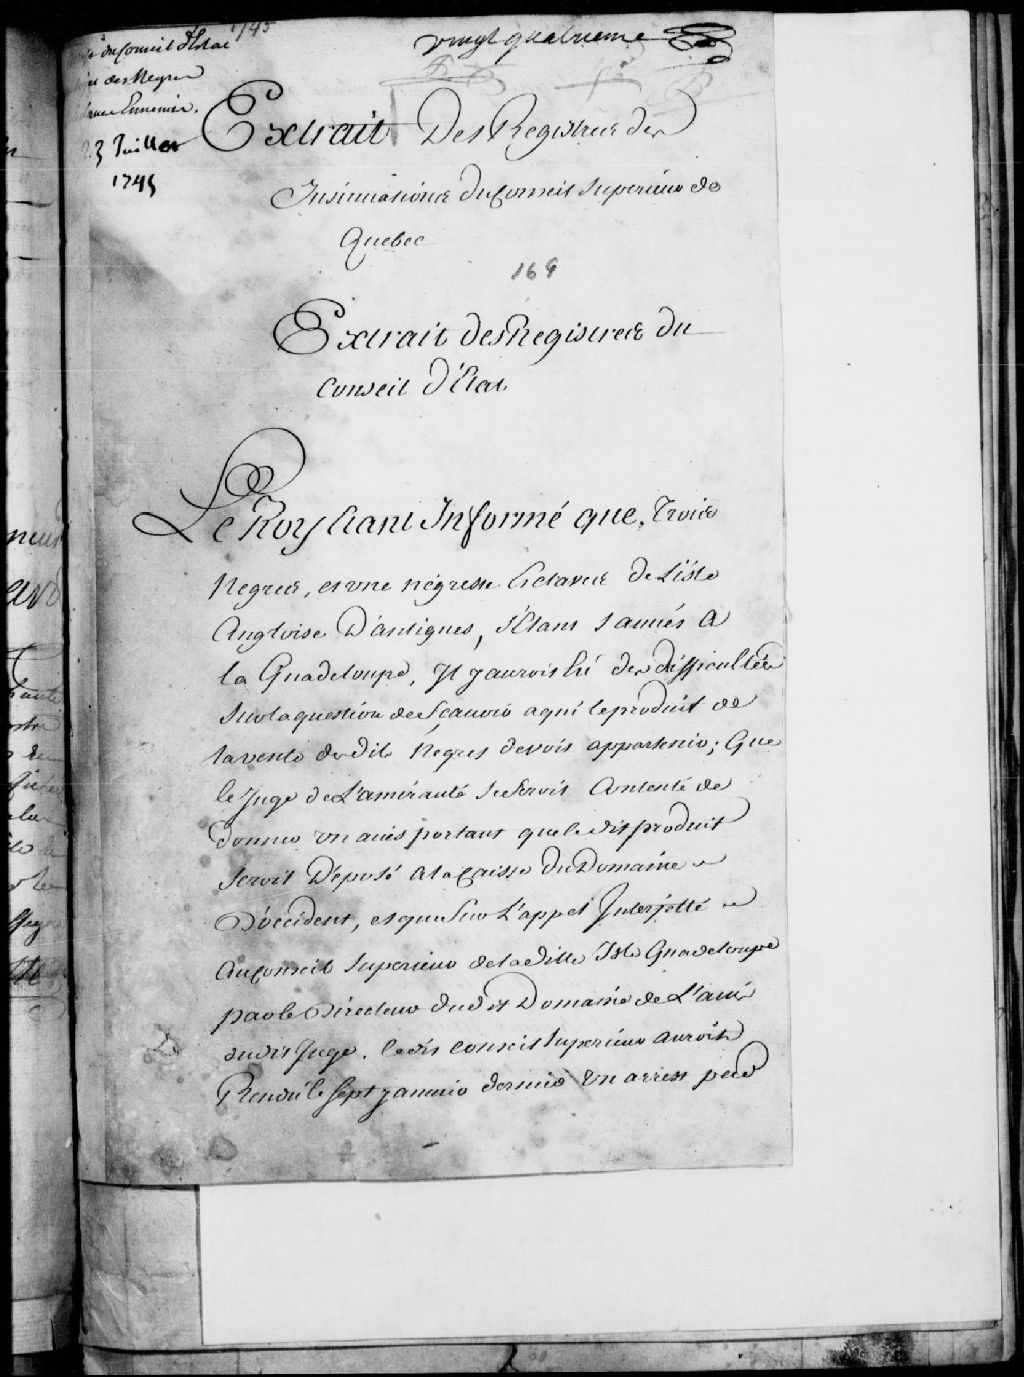 1745
du Conseil d'Etat
des Negres
Ennemis.
23 Juillet
1745
vingt quatrieme
Extrait Des Registres des
Insinuations du Conseil Superieur de
Quebec
169
Extrait des Registres du
Conseil d'Etat
Le Roy étant Informé que, Trois
Negres, et une négresse Esclaves de L'isle
Angloise D'antigues, s'Etant sauvés a
la Guadeloupe, Il y auroit Eu des difficultés
sur la question de Sçauoir a qui le produit de
la vente desdits Negres devoit appartenir; Que
le Juge de L'amirauté se seroit Contenté de
donner un auis portant que ledit produit
seroit Déposé a la Caisse du Domaine
D'occident, et que sur L'appel Interjetté
au Conseil Superieur de la ditte Isle Guadeloupe
par le Directeur dudit Domaine de L'auis
dudit Juge. ledit Conseil Superieur auroit
Rendu le sept januier dernier un arrest par